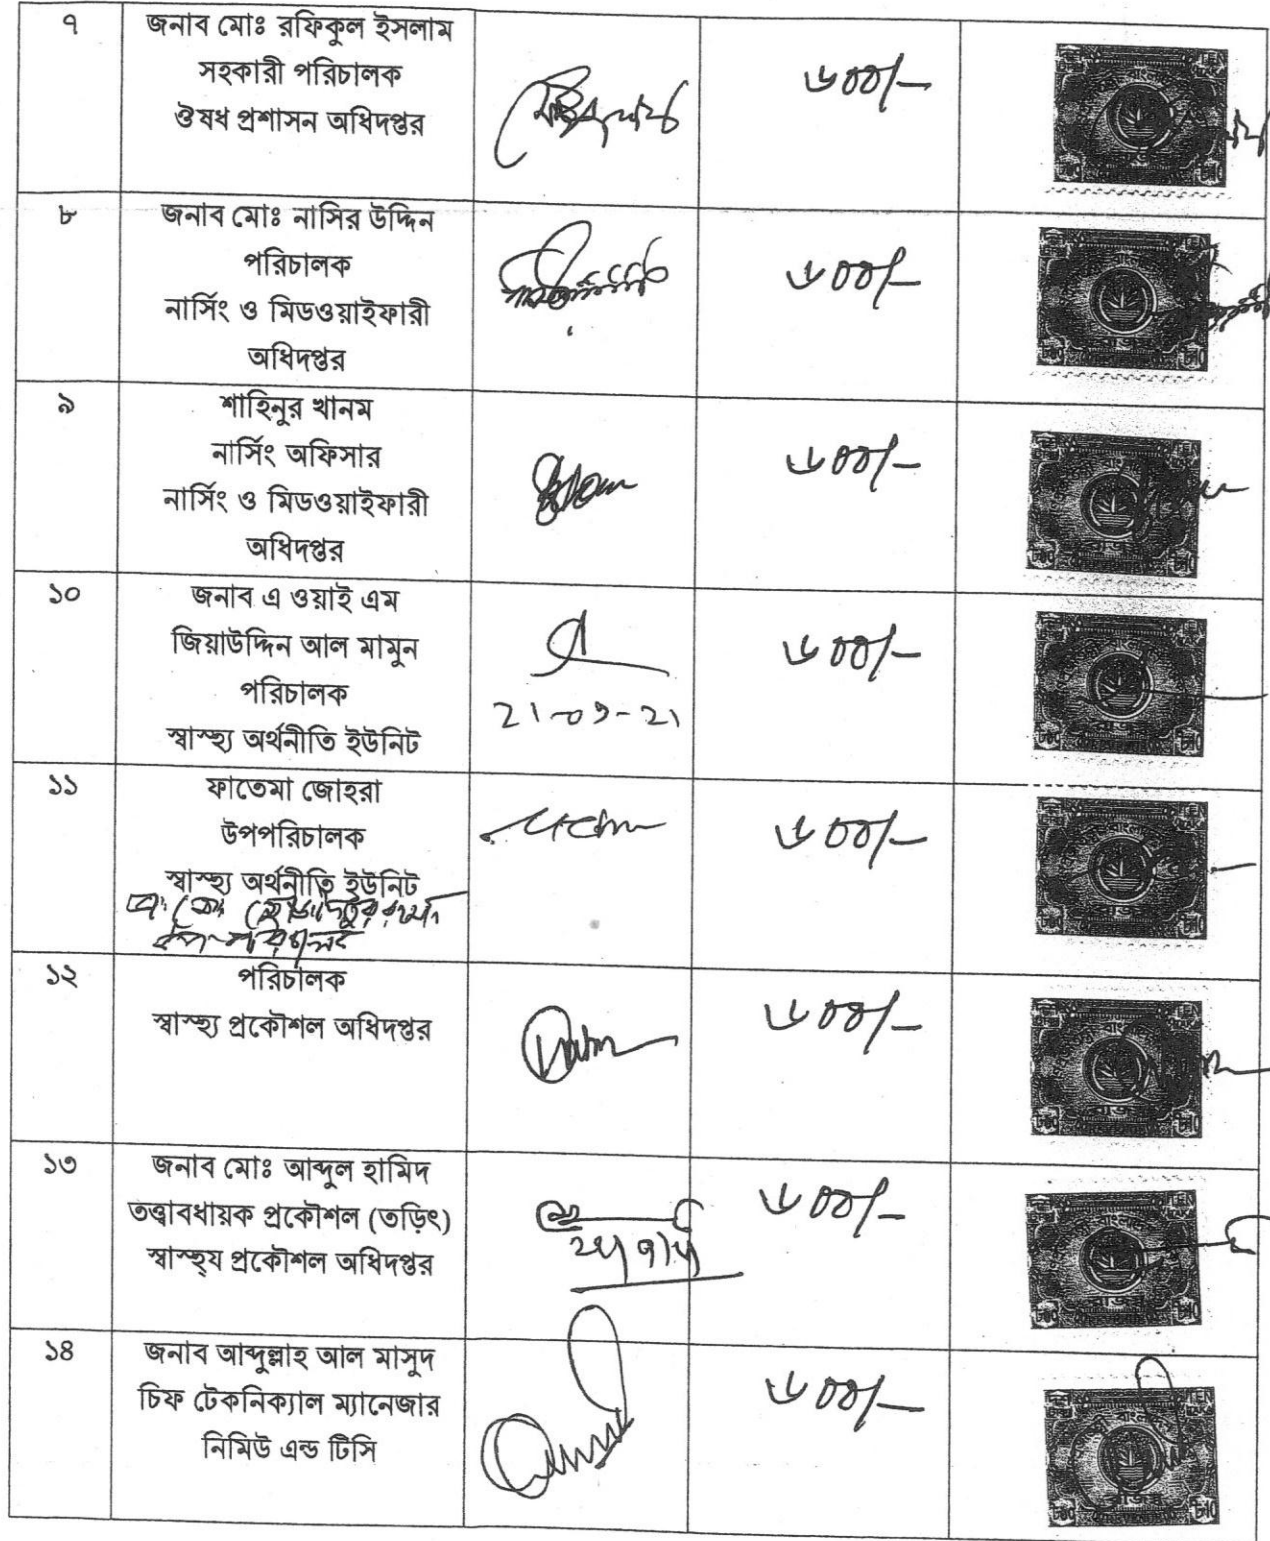 ৭
জনাব মোঃ রফিকুল ইসলাম
সহকারী পরিচালক
ঔষধ প্রশাসন অধিদপ্তর
৬০০/-
৮
জনাব মোঃ নাসির উদ্দিন
পরিচালক
নার্সিং ও মিডওয়াইফারী
অধিদপ্তর
৬০০/-
৯
শাহিনুর খানম
নার্সিং অফিসার
নার্সিং ও মিডওয়াইফারী
অধিদপ্তর
৬০০/-
১০
জনাব এ ওয়াই এম
জিয়াউদ্দিন আল মামুন
পরিচালক
স্বাস্থ্য অর্থনীতি ইউনিট
৬০০/-
১১
ফাতেমা জোহরা
উপপরিচালক
স্বাস্থ্য অর্থনীতি ইউনিট
৬০০/-
১২
পরিচালক
স্বাস্থ্য প্রকৌশল অধিদপ্তর
৬০০/-
১৩
জনাব মোঃ আব্দুল হামিদ
তত্ত্বাবধায়ক প্রকৌশল (তড়িৎ)
স্বাস্হ্য প্রকৌশল অধিদপ্তর
৬০০/-
১৪
জনাব আব্দুল্লাহ আল মাসুদ
চিফ টেকনিক্যাল ম্যানেজার
নিমিউ এন্ড টিসি
৬০০/-